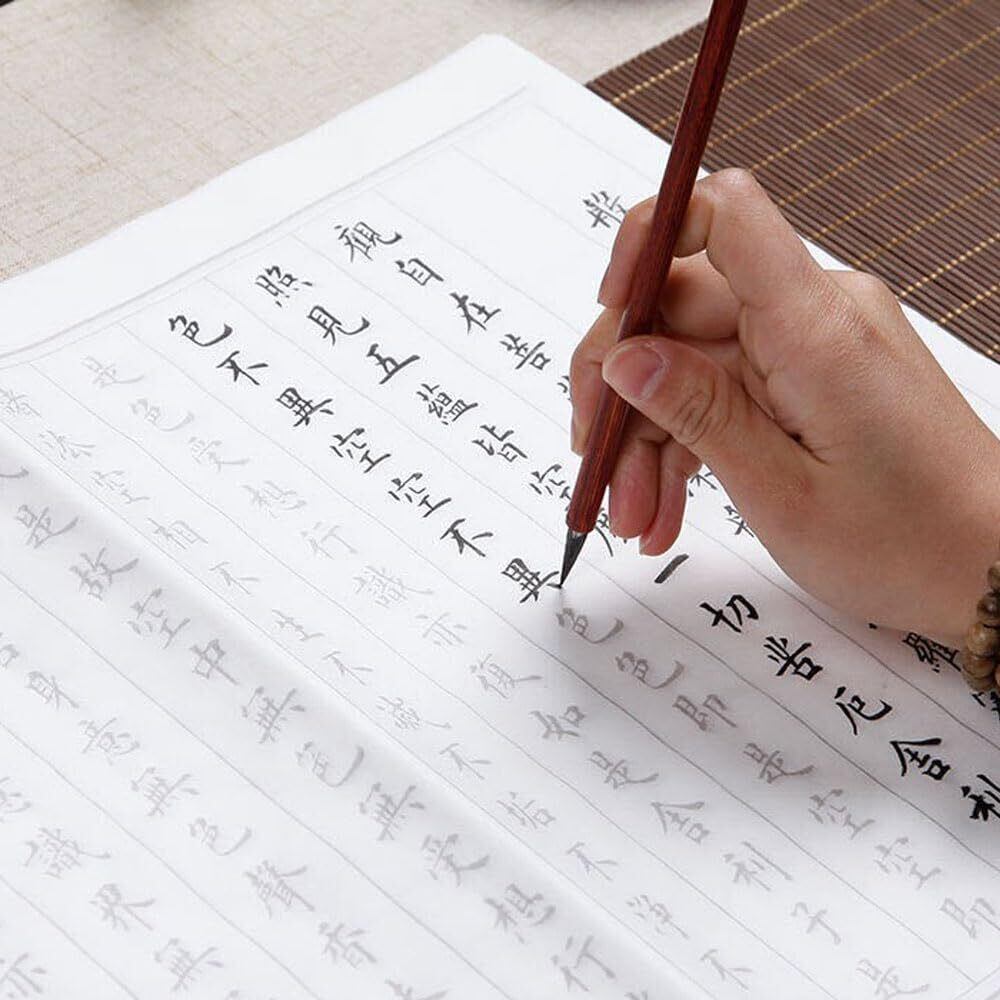 般
觀自在菩 般 羅
照見五蘊皆空度一切苦厄舍利
色不異空空不異色色即是空空即
是色受想行識亦復如是舍利子是
諸法空相不生不滅不垢不淨不
是故空中無色無受想行
身意無色聲香
識界無
亦